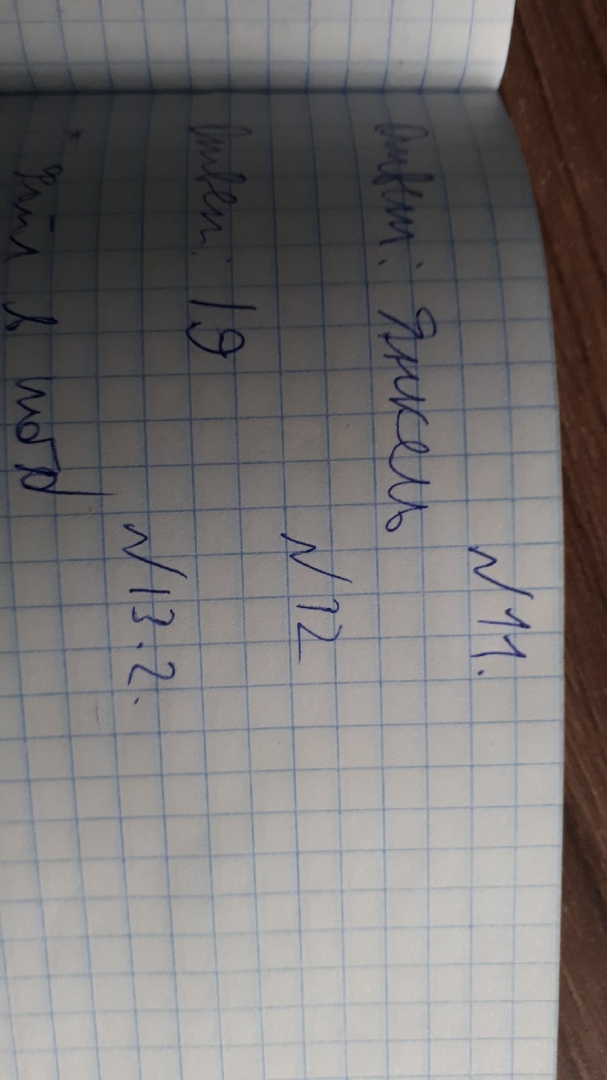 №11.
Ответ: Янкель
№12
Ответ: 19
№13.2.
* в